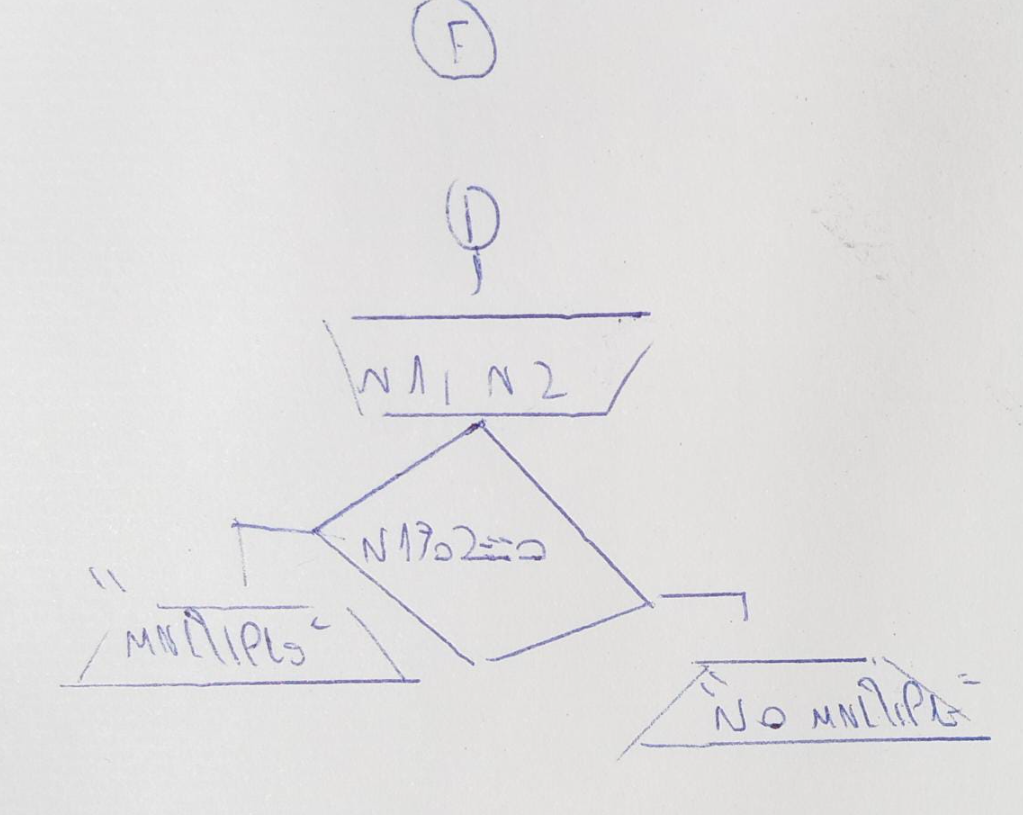 F
I
N1, N2
N1%2==0
"MULTIPLO"
"NO MULTIPLO"